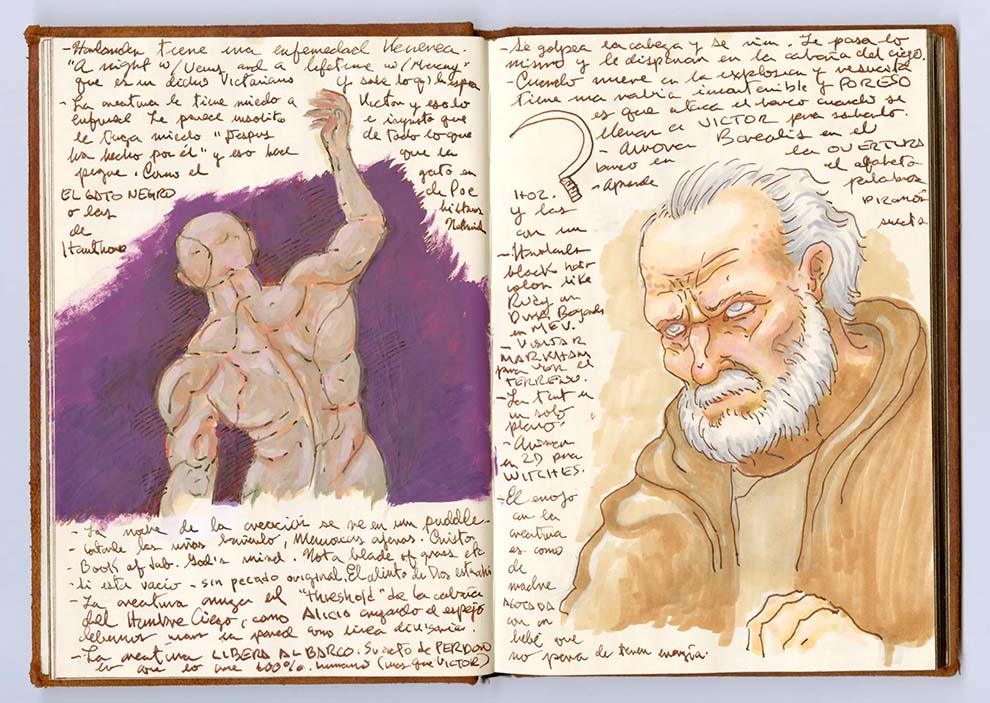 - Harlander tiene una enfermedad Venerea.
"A night w/Venus and a lifetime w/Mercury"
que es un dicho Victoriano y sabe lo q) le espera
- La creatura le tiene miedo a Victor y eso lo
enfurece. Le parece insolito e injusto que
le tenga miedo "Despues de todo lo que
ha hecho por él" y eso hace que la
pegue. Como el gato en
EL GATO NEGRO de Poe
o las
de Hawthorne
- La noche de la creación se ve en un puddle.
- Cortarle las uñas, bañarlo, Memories afines. Cristos
- Book of Job. God's mind. Not a blade of grass etc
- Si esta vacio - sin pecado original. El aliento de Dos
- La creatura cruza el "threshold" de la cabaña
del Hombre Ciego, como ALICIA cruzando el espejo
debemos usar la pared como linea divisoria.
- La creatura LIBERA AL BARCO. Su acto de PERDON
es lo que lo 100% humano (mas que VICTOR)
- Se golpea la cabeza y se rien. Le pasa lo
mismo y le disparan en la cabaña del ciego.
- Cuando muere en la explosion y resucita
tiene una rabia incontenible y POR ESO
es que ataca el barco cuando se
llevan a VICTOR para salvarlo.
- Aurora Borealis en el
barco en la OVERTURA
- Aprende el alfabeto
y las palabras
HOZ.
con un
black hair
color like
en MEV.
- VISITAR
MARKHAM
para ver el
TERRENO.
- La tent en
un solo
plano
- Animar
en 2D para
WITCHES.
- El enojo
con la
creatura
es como
de
madre
AGOTADA
con un
bebé que
no para de tener energía.